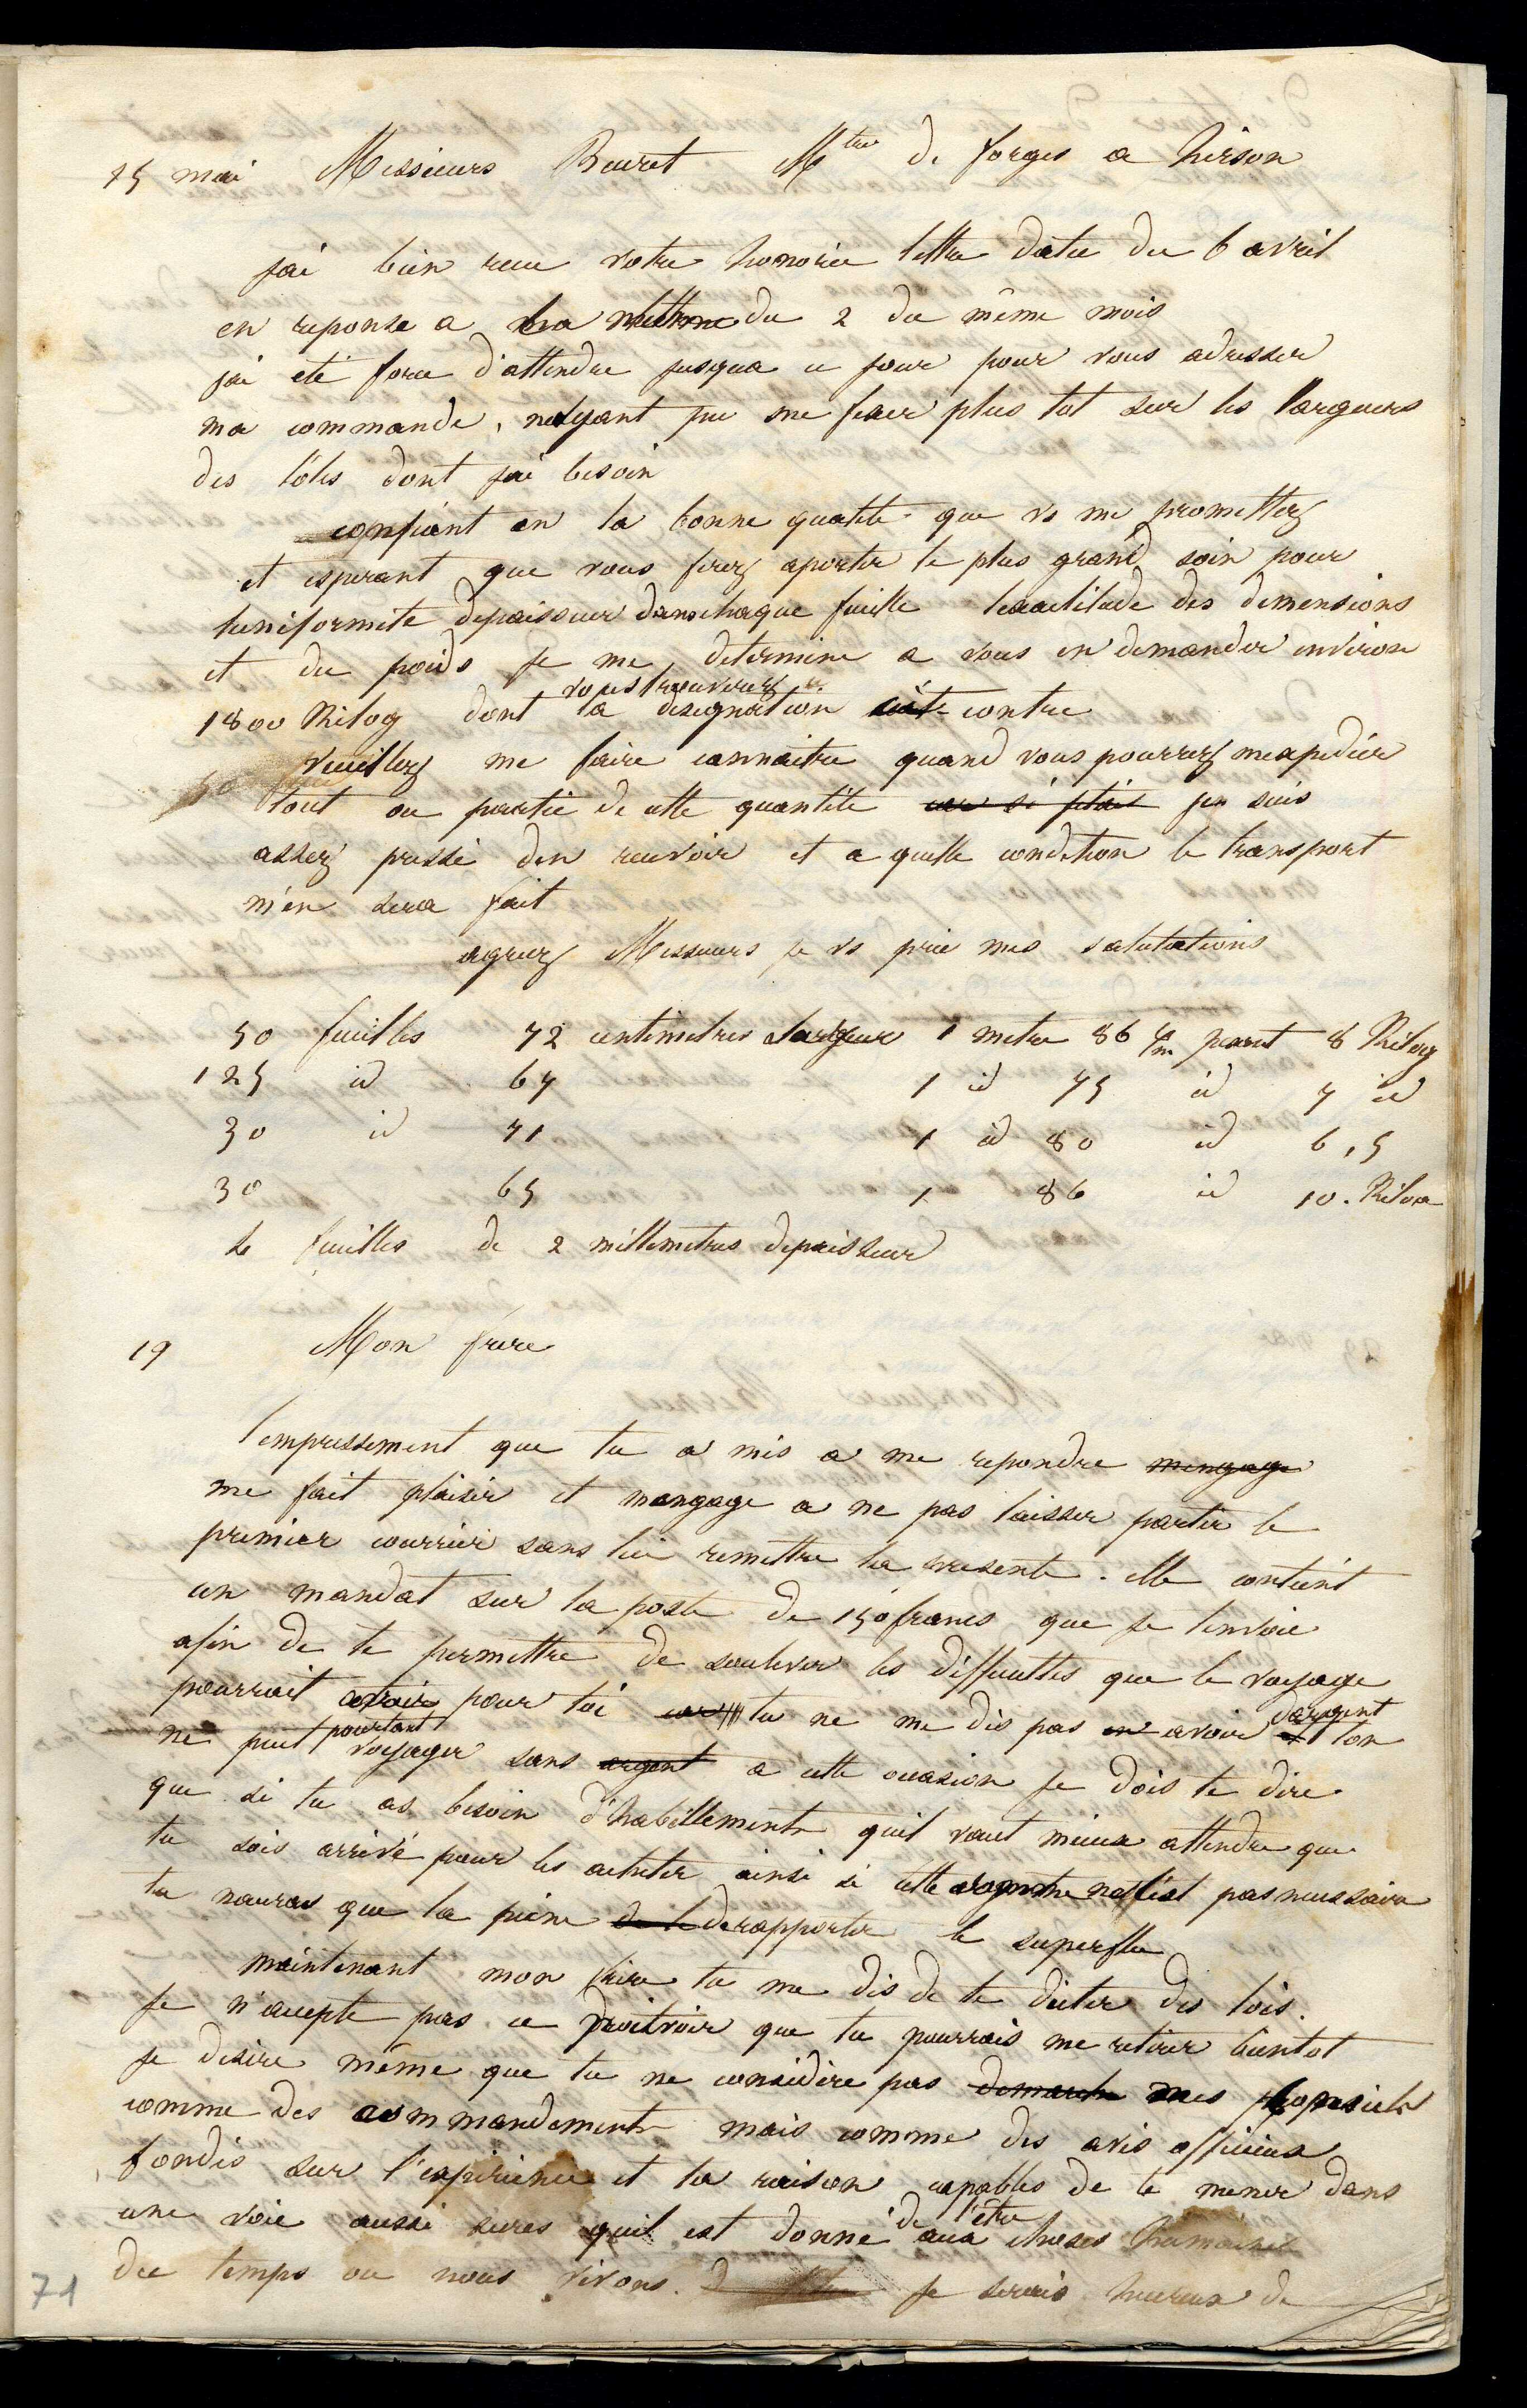 15 mai Messieurs Mtre de forges a hirson
jai bien recu votre honorée lettre datée du 6 avril
en reponse a la mienne du 2 du même mois
jai eté forcé d'attendre jusqua ce jour pour vous adresser
ma commande, nayant pu me fixer plus tot sur les largeurs
des tôles dont jai besoin
confiant en la bonne qualite que vs me promettez
et esperant que vous ferez aporter le plus grand soin pour
luniformité depaisseur dans chaque feuille lexactitude des dimensions
et du poids je me determine a vous en demander environ
1800 Kilog dont vous trouverez la designation ci contre
veuillez me faire connaitre quand vous pourrez mexpedier
tout ou partie de cette quantité car si jetais jen suis
assez pressé den recevoir et a quelle condition le transport
m'en sera fait
agreez Messieurs je vs prie mes salutations
50 feuilles 72 centimetres largeur 1 metre 86 c/m pesant 8 Kilog
125 id 67 1 id 75 id 7 id
30 id 71 1 id 80 id 6,5
30 65 1 86 id 10. Kilog
feuilles de 2 millimetres depaisseur
19 Mon frere
l'empressement que tu a mis a me repondre mengage
me fait plaisir et mengage a ne pas laisser partir le
premier courrier sans lui remettre la presente. elle contient
un mandat sur la poste de 150 francs que je tenvoie
afin de te permettre de soulever les difficultés que le voyage
pourrait avoir pour toi car tu ne me dis pas en avoir dargent et lon
ne peut pourtant voyager sans argent a cette occasion je dois te dire
que si tu as besoin d'habillements quil vaut mieux attendre que
tu sois arrivé pour les acheter ainsi si cette somme nest pas necessaire
tu nauras que la peine de le de rapporter le superflu
maintenant mon frère tu me dis de te dicter des lois.
je n'accepte pas ce pouvoir que tu pourrais me retirer bientot
je desire même que tu ne considère pas mes conseils
comme des commandements mais comme des avis officieux
fondés sur l'expérience et la raison capables de te mener dans
une voie aussi sures quil est donné de l'être aux choses humaines
du temps ou nous vivons. je serais heureux de
71